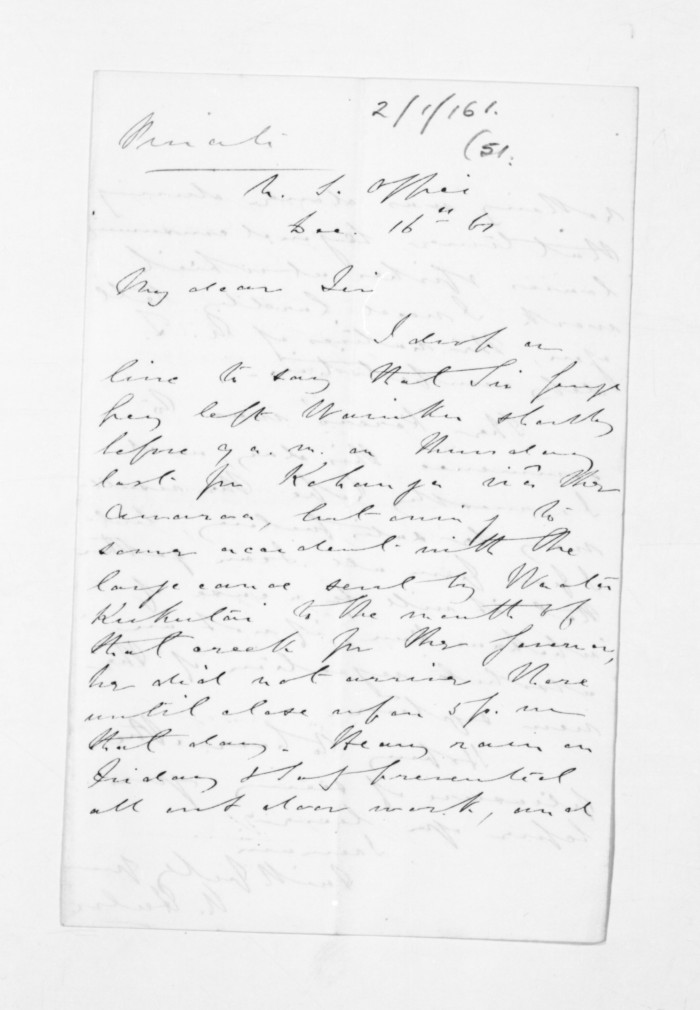 2/1/161.
(51.
Private
N. S. Office
Dec. 16th 61
My dear Sir
I drop a
line to say that Sir George
Grey left Waiuku shortly
before 9 a.m. on Thursday
last for Kohanga viâ the
Awaroa, but owing to
some accident with the
large canoe sent by Waata
Kukutai to the mouth of
that creek for the Governor,
he did not arrive there
until close upon 5 p.m
that day. Heavy rain on
Friday prevented
all out door work, and